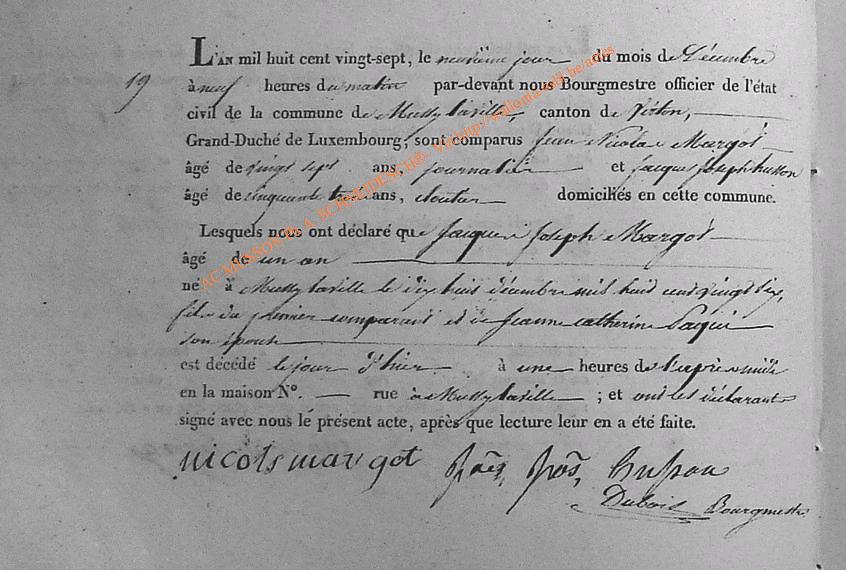 19
L'AN mil huit cent vingt-sept, le neuvième jour du mois de Décembre
à neuf heures du matin par-devant nous Bourgmestre officier de l'état
civil de la commune de Mussy laville, canton de Virton,
Grand-Duché de Luxembourg, sont comparus Jean Nicolas Margot
âgé de vingt sept ans, journalier et jacques joseph husson
âgé de cinquante trois ans, cloutier domiciliés en cette commune.
Lesquels nous ont déclaré que Jacques Joseph Margot
âgé de un an
né à Mussy laville le dix huit décembre mil huit cent vingt six,
fils du premier comparant et de Jeanne catherine Paquí
son épouse
est décédé le jour d'hier à une heures de l'après midi
en la maison N°. rue à Mussy laville ; et ont les déclarants
signé avec nous le présent acte, après que lecture leur en a été faite.
nicols margot husson
Dubois Bourgmestre
AC MUSSON